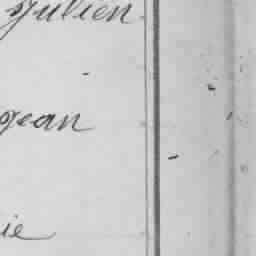 Julien
Jean
ie